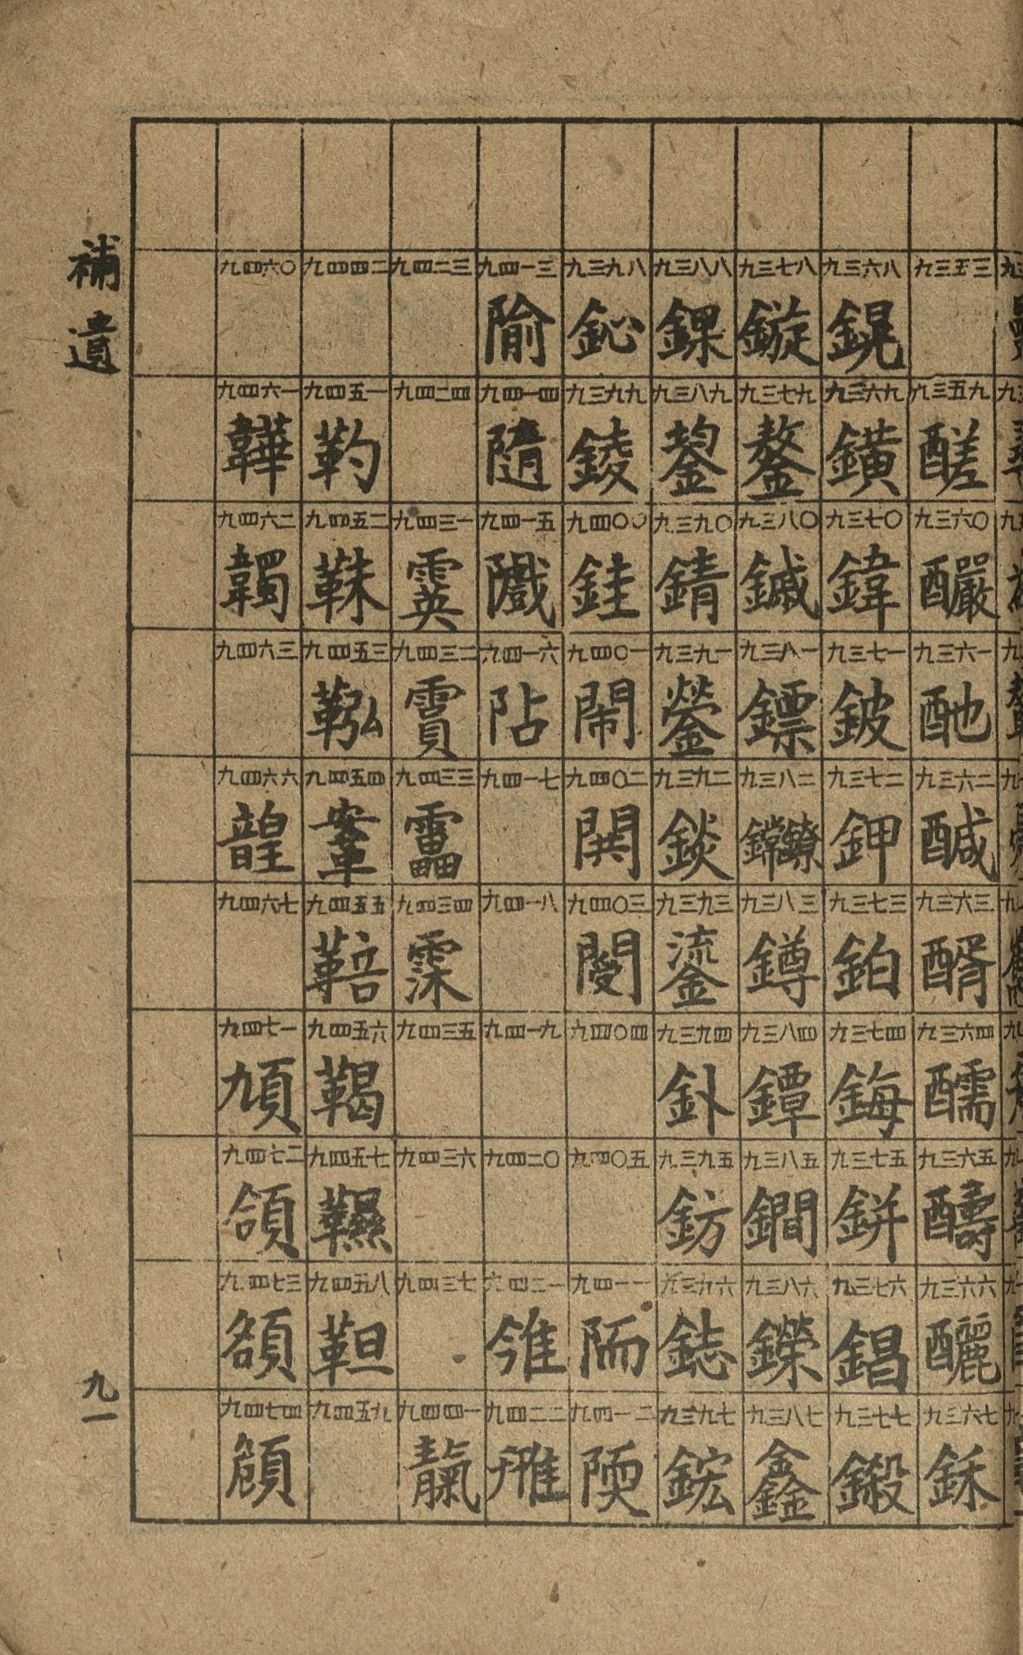 補遺
九三五三
九三五九 醝
九三六〇 釅
九三六一 酏
九三六二 醎
九三六三 醑
九三六四 醹
九三六五 醻
九三六六 釃
九三六七
九三六八 鎤
九三六九 鐄
九三七〇 鍏
九三七一 鈹
九三七二 鉀
九三七三 鉑
九三七四 鋂
九三七五 鉼
九三七六 錩
九三七七
九三七八 鏇
九三七九 鏊
九三八〇 鏚
九三八一 鏢
九三八二 鐐
九三八三 鐏
九三八四 鐔
九三八五 鐧
九三八六 鑅
九三八七 鑫
九三八八 錁
九三八九 鍪
九三九〇 錆
九三九一 鎣
九三九二 錟
九三九三 鎏
九三九四 釙
九三九五 鈁
九三九六 鋕
九三九七 鋐
九三九八 鉍
九三九九 錂
九四〇〇 銈
九四〇一 閙
九四〇二 閧
九四〇三 閿
九四〇四
九四〇五
九四一一 陑
九四一二 陾
九四一三 隃
九四一四 隨
九四一五
九四一六 阽
九四一七
九四一八
九四一九
九四二〇
九四二一 雂
九四二二 雃
九四二三
九四二四
九四三一 霙
九四三二 霣
九四三三 靁
九四三四 霂
九四三五
九四三六
九四三七
九四四一 靝
九四四二
九四五一 靮
九四五二 靺
九四五三 鞃
九四五四 鞌
九四五五 鞛
九四五六 鞨
九四五七 韅
九四五八 靼
九四五九
九四六〇
九四六一 韡
九四六二 韣
九四六三
九四六六 韹
九四六七
九四七一 頄
九四七二 頜
九四七三 頟
九四七四 頠
九一